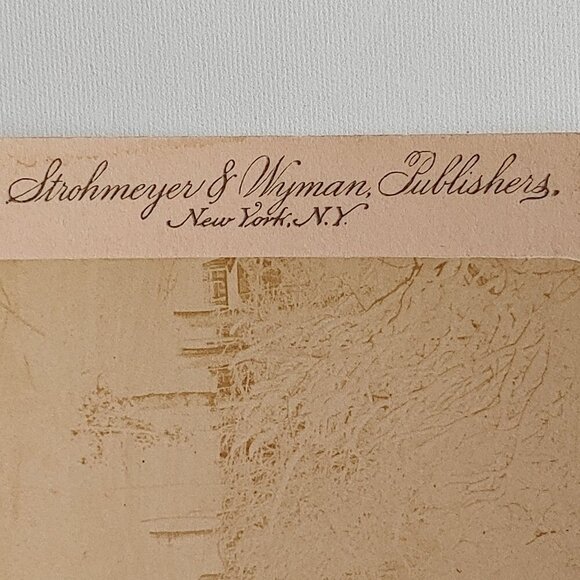 Strohmeyer & Wyman, Publishers.
New York, N.Y.